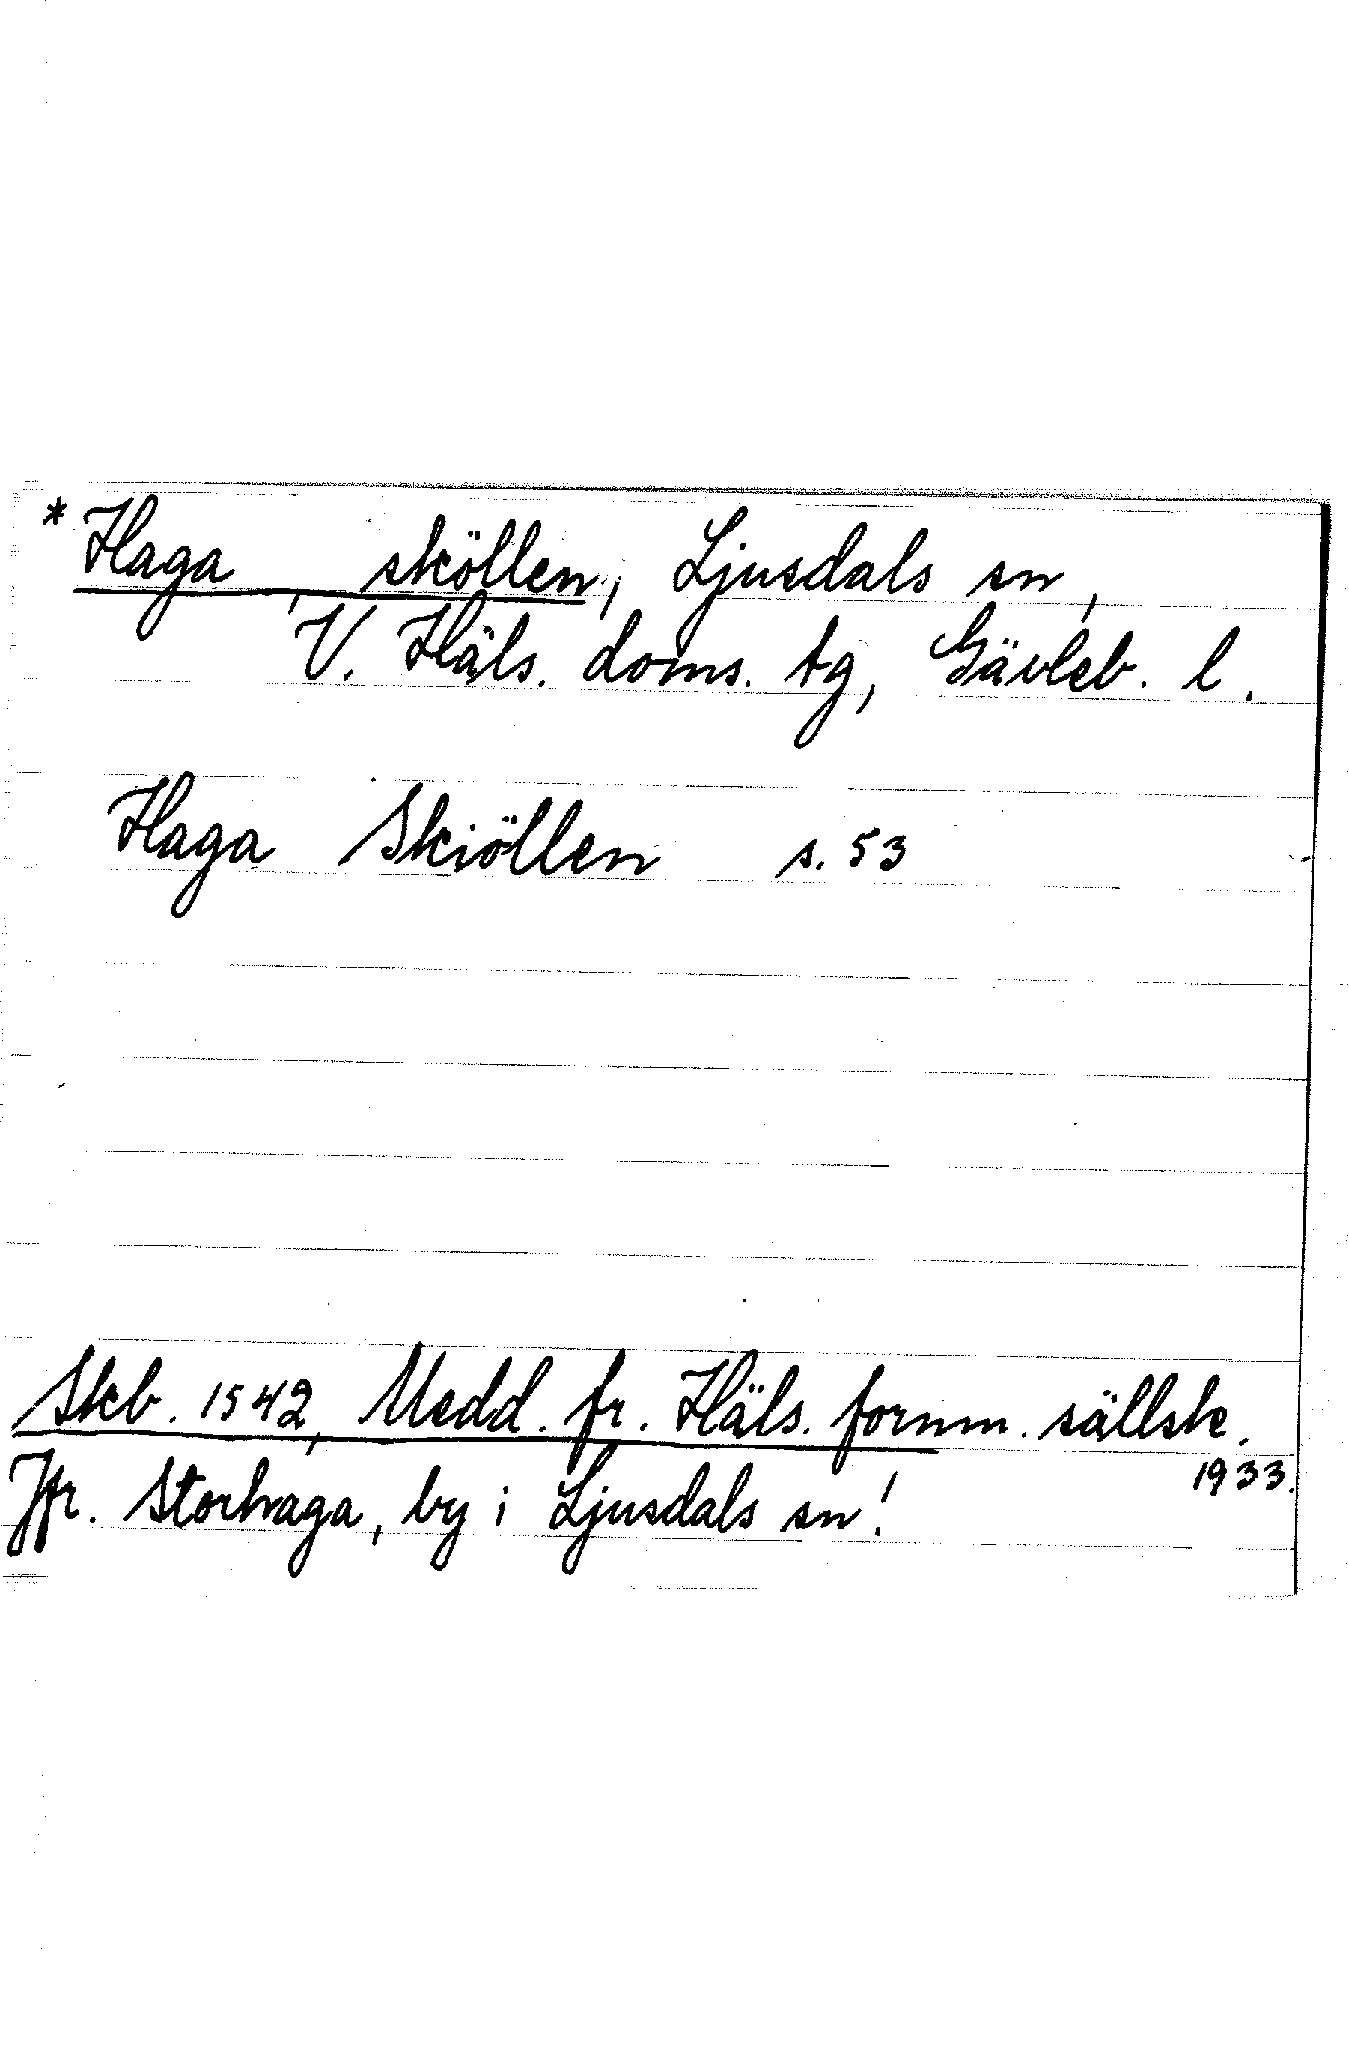 * Haga, sköllen, Ljusdals sn,
V. Häls. doms. tg, Gävleb. l.
Haga Skiöllen s. 53
Skb. 1542, Medd. fr. Häls. fornm. sällsk.
1933.
Jfr. Storhaga, by i Ljusdals sn!